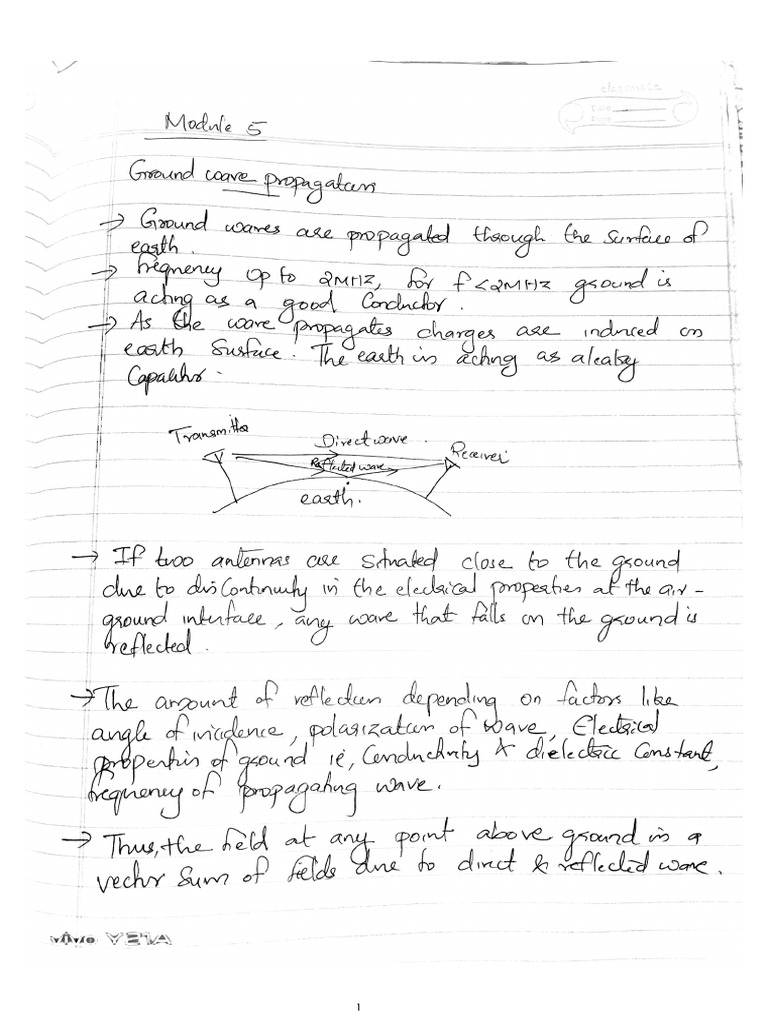 classmate
Date
Page
Module 5
Ground wave propagation
→ Ground waves are propagated through the surface of
earth.
→ frequency up to 2MHz, for f<2MHz ground is
acting as a good Conductor.
→ As the wave propagates charges are induced on
earth surface. The earth is acting as a leaky
Capacitor.
Transmitter
Direct wave.
Receiver
Reflected wave
earth.
→ If two antennas are situated close to the ground
due to discontinuity in the electrical properties at the air-
ground interface, any wave that falls on the ground is
reflected.
→ The amount of reflection depending on factors like
angle of incidence, polarization of wave, Electrical
properties of ground ie, Conductivity & dielectric Constant,
frequency of propagating wave.
→ Thus, the field at any point above ground is a
vector sum of fields due to direct & reflected wave.
vivo Y21A
1